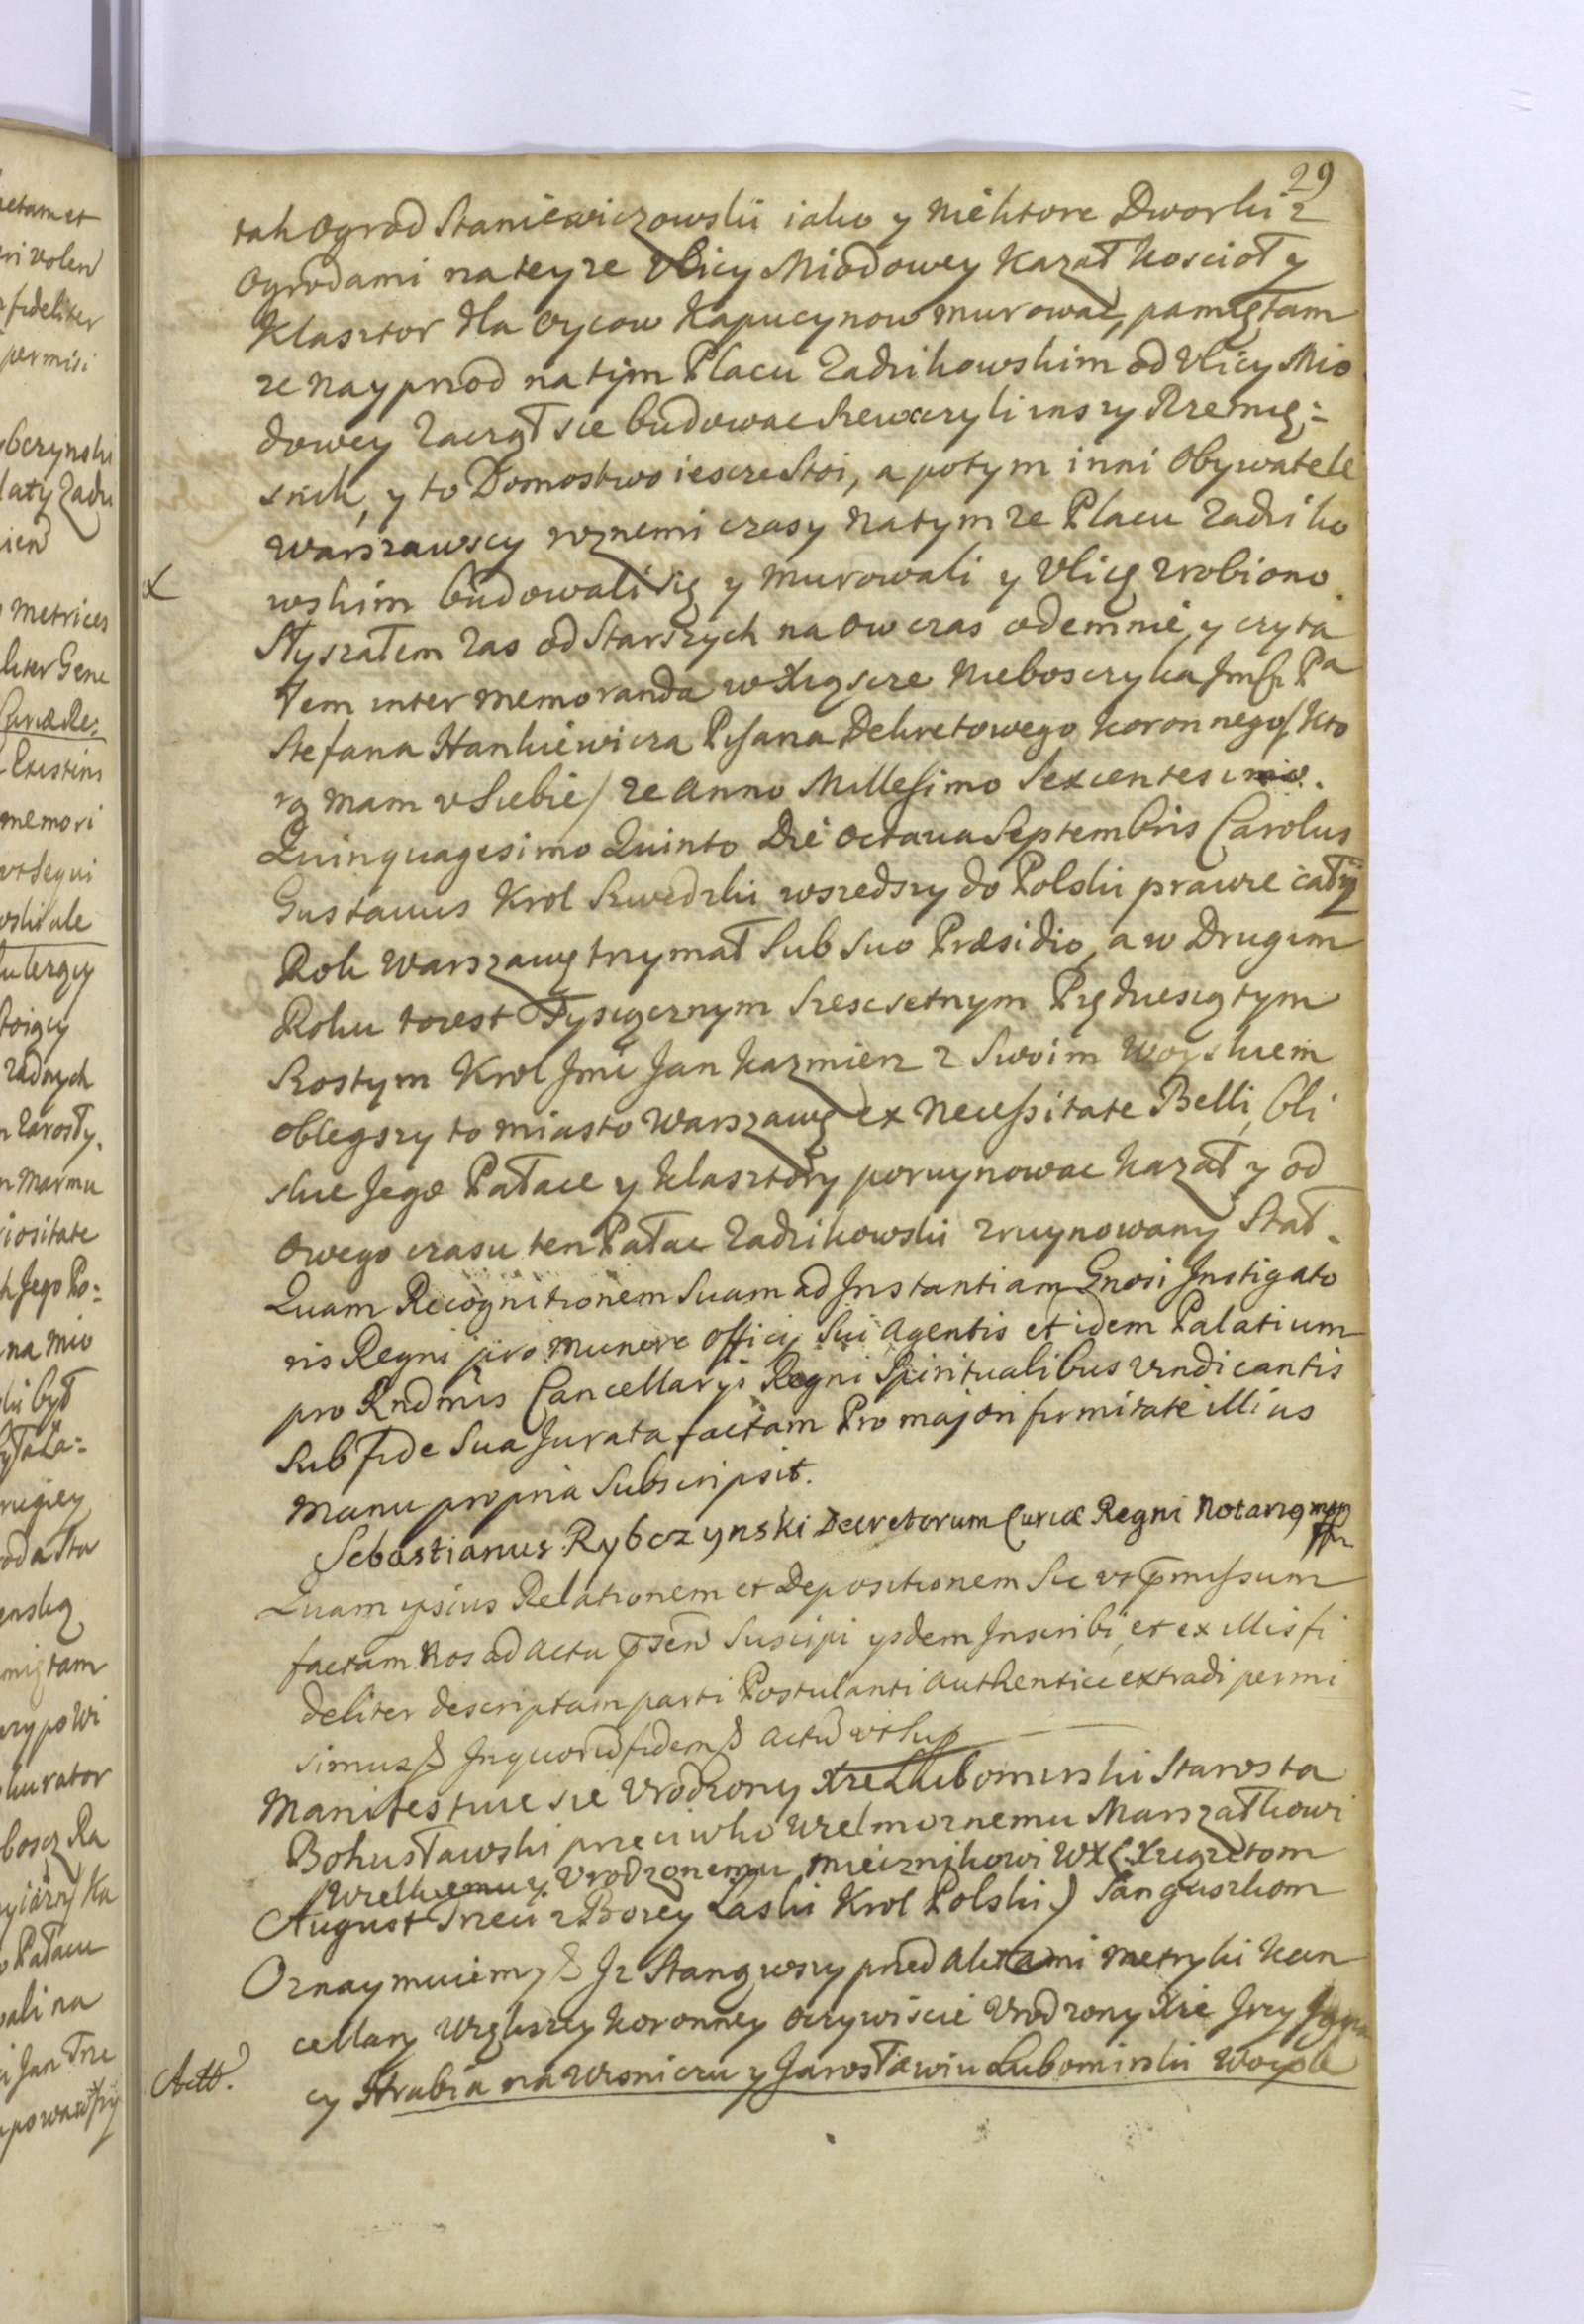 29
tak Ogrod Staniewiczowski iako y niektore Dworki z
Ogrodami na teyze Vlicy Miodowey kazał koscioł y
Klasztor dla Oycow Kapucynow murować, pamiętam
ze naypnod na tym Placu Zadzikowskim od Vlicy Mio
dowey zaczął sie budowac Szewczyli inszy Rzemię:
snik, y to Domostwo iescze stoi, a potym inni Obywatele
Warszawscy roznemi czasy na tym ze Placu Zadziko
wskim budowali się y murowali y Vlicę zrobiono.
Słyszałem zas od Starszych na ow czas odemnie, y czyta
łem inter memoranda w Xiąscze Nieboszczyka Jmsci Pa
Stefana Hankiewicza Pisarza Dekretowego koronnego/ kto
rą mam v Siebie/ ze Anno Millesimo Sexcentesimo.
Quinquagesimo Quinto Die Octaua Septembris Carolus
Gustauus Krol Szwedzki wszedszy do Polski prawie cały
Rok Warszawę trzymał sub suo Præsidio, a w Drugim
Roku to iest Tysiącznym Szescsetnym Pięcdziesiątym
Szostym Krol Jmć Jan Kazmierz z swoim Woyskiem
oblegszy to miasto Warszawę ex necessitate Belli, bli
skie Jego Pałace y Klasztory poruynowac kazał y od
owego czasu ten Pałac Zadzikowski zruynowany stał.
Quam Recognitionem suam ad Instantiam Gnosi Instigato
ris Regni pro munere officij sui agentis et idem Palatium
pro Rndmis Cancellarys Regni Spiritualibus vindicantis
sub fide sua Jurata factam Pro majori firmitate illius
manu propria subscripsit.
Sebastianus Rybczynski Decretorum Curiæ Regni Notarig mpp
Quam ipsius Relationem et Depositionem sic vt p̄missum
factam nos ad acta p̄sen suscipi ysdem Inscribi, et ex illis fi
deliter descriptam parti Postulanti authentice extradi permi
simus & In quorū fidem & actū vt sup
Manifestuie sie Vrodzony Xże Lubomirski Starosta
Bohusławski przeciwko Wielmoznemu Marszałkowi
Wielkiemu y Vrodzonemu miecznikowi WXL Xiążętom
August Trzeci z Bozey Łaski Krol Polski) Sanguszkom
Oznaymuiemy & Iz Stanąwszy przed Aktami Metryki kan
cellary Większey koronney oczywiscie Vrodzony Xże Jrzy Igna
cy Hrabia na Wisniczu y Jarosławiu Lubomirski Woysk
Actt.